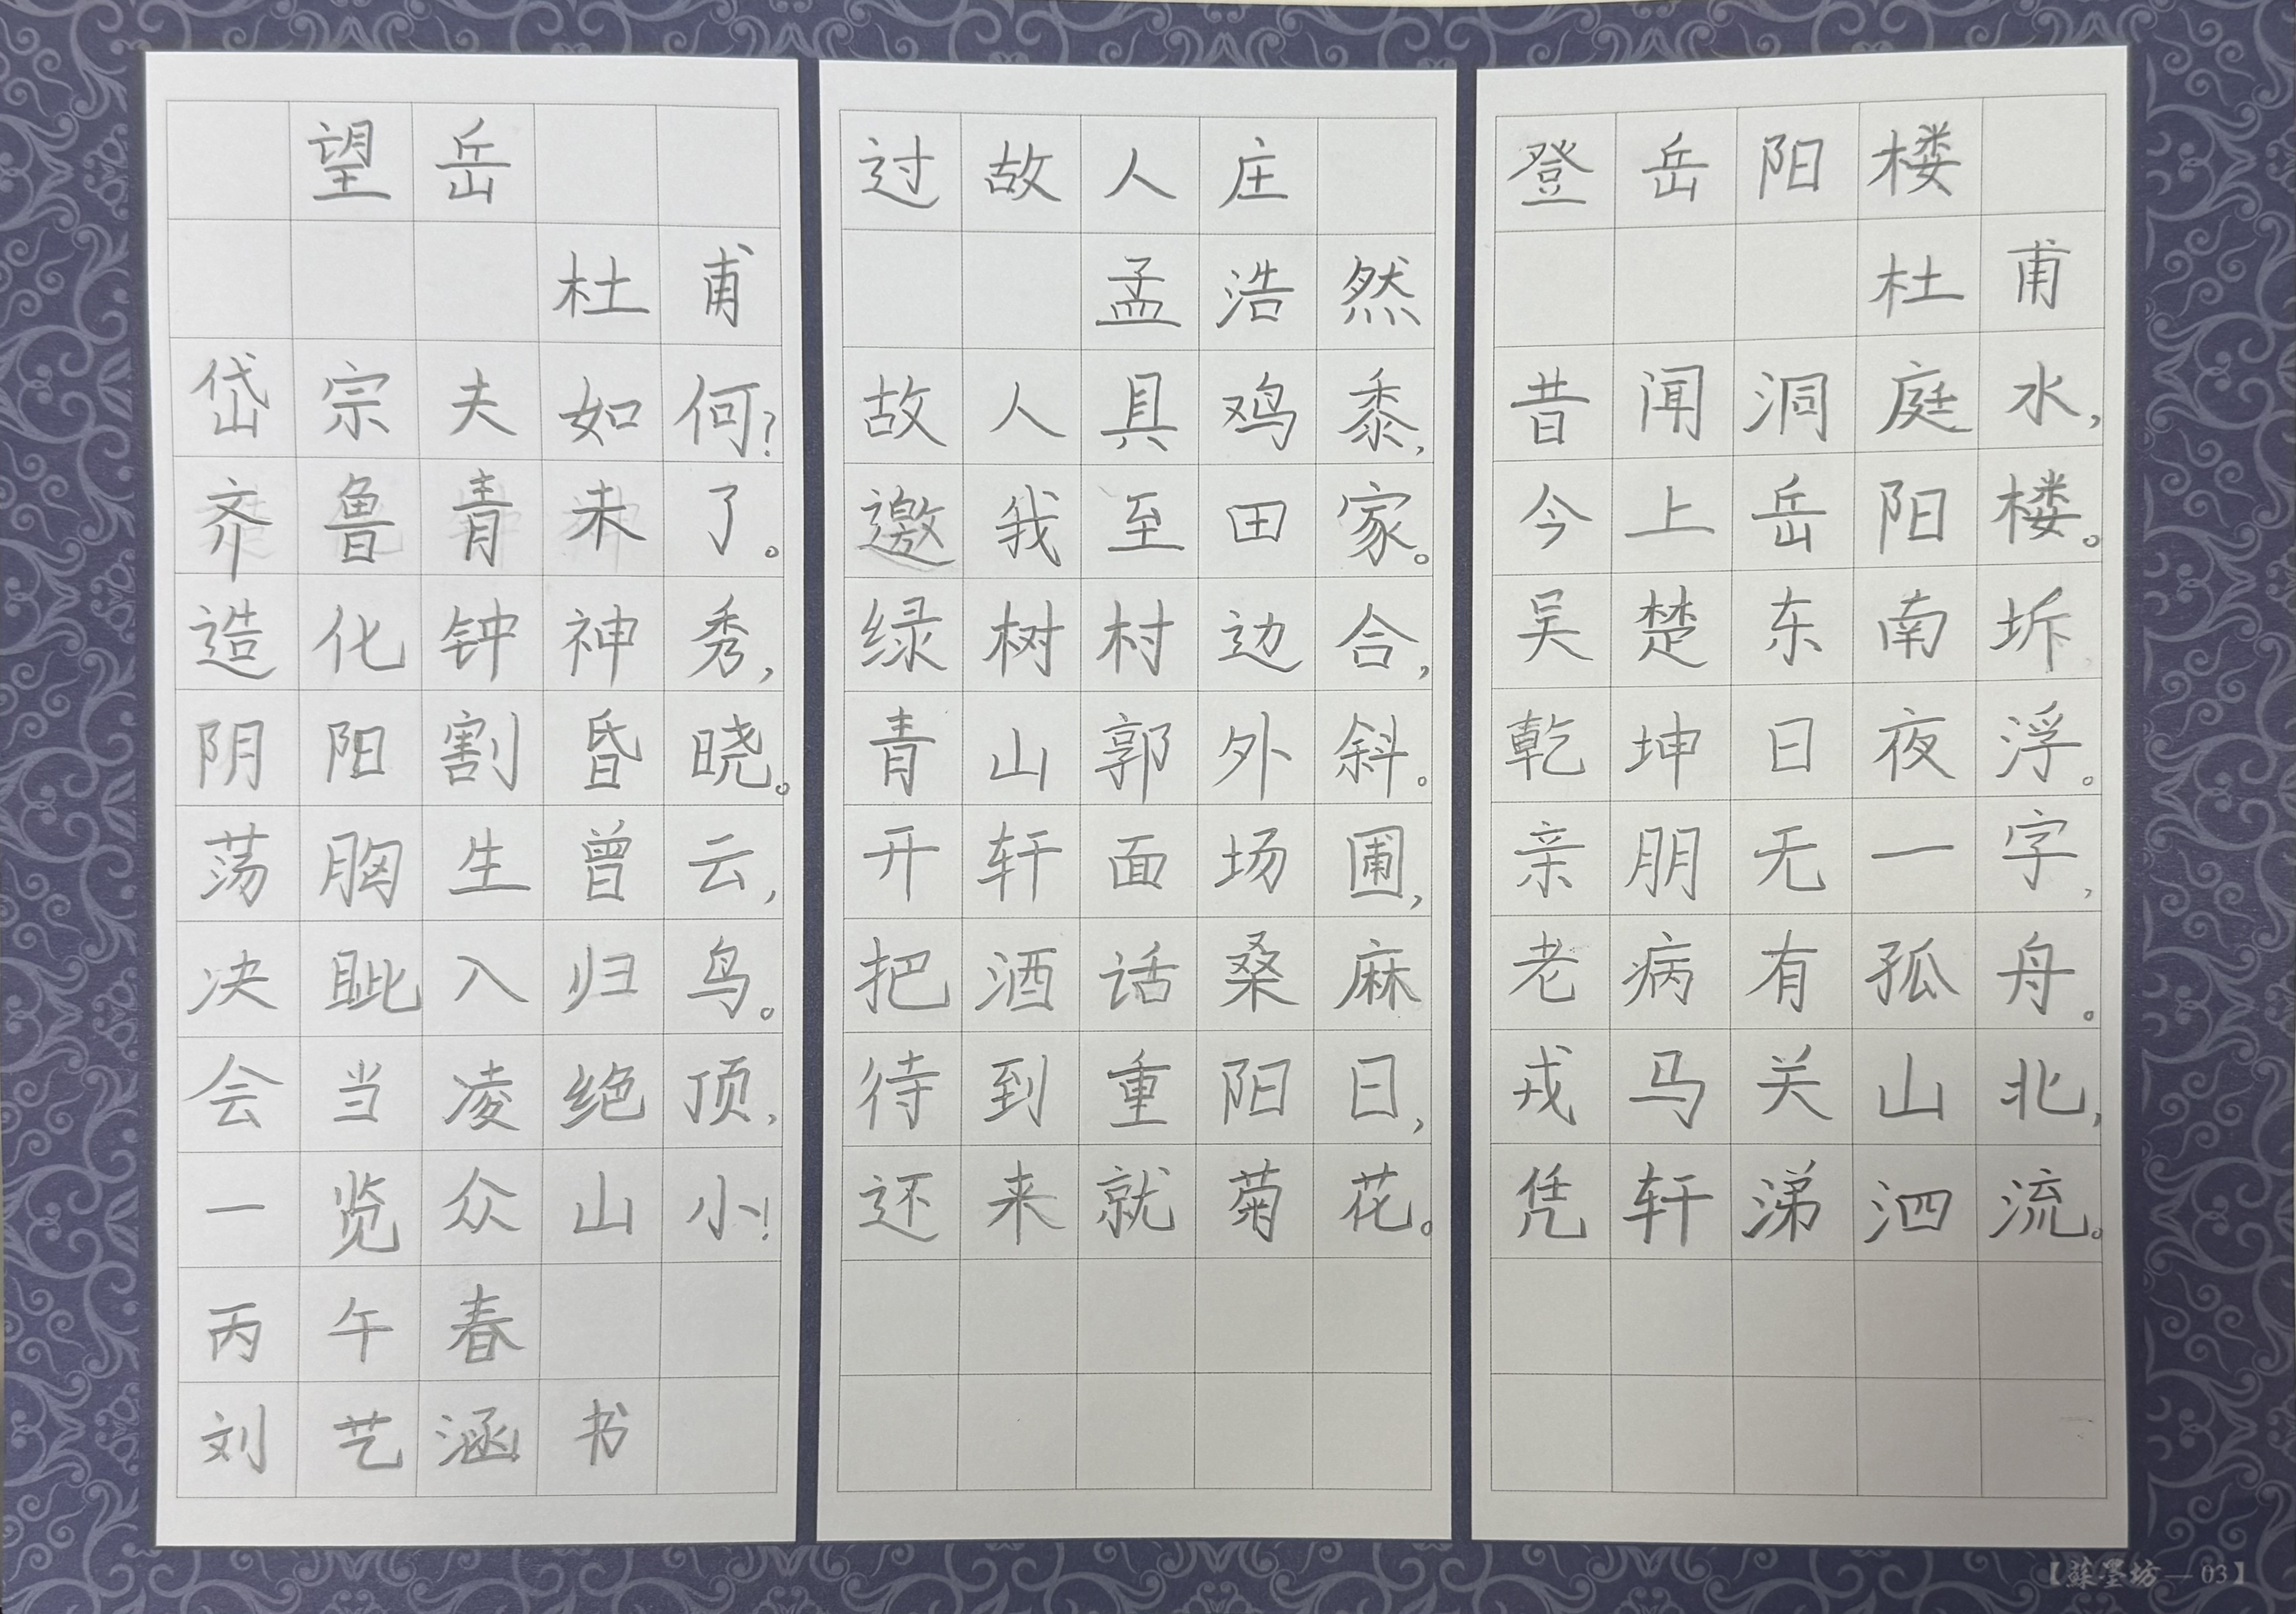 望岳
杜甫
岱宗夫如何?
齐鲁青未了。
造化钟神秀,
阴阳割昏晓。
荡胸生曾云,
决眦入归鸟。
会当凌绝顶,
一览众山小!
丙午春
刘艺涵书
过故人庄
孟浩然
故人具鸡黍,
邀我至田家。
绿树村边合,
青山郭外斜。
开轩面场圃,
把酒话桑麻
待到重阳日,
还来就菊花。
登岳阳楼
杜甫
昔闻洞庭水,
今上岳阳楼。
吴楚东南坼,
乾坤日夜浮。
亲朋无一字,
老病有孤舟。
戎马关山北,
凭轩涕泗流。
【蘇墨坊—03】